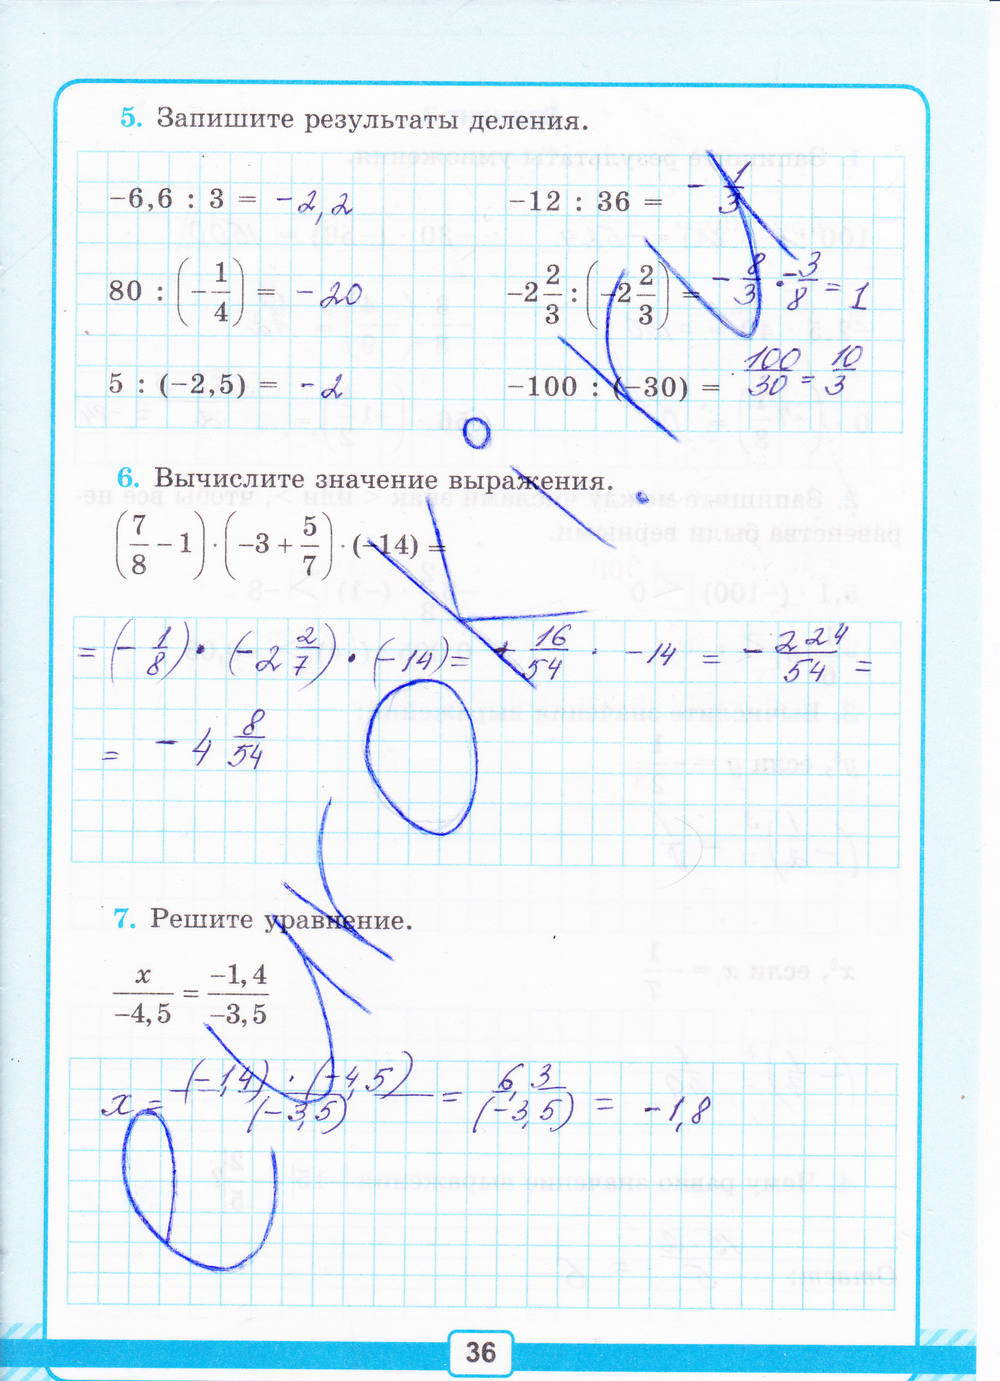 5. Запишите результаты деления.
−6,6 : 3 = −2,2
−12 : 36 = −1/3
80 : (−1/4) = −20
−2 2/3 : (−2 2/3) = −8/3 · −3/8 = 1
5 : (−2,5) = −2
−100 : (−30) = 100/30 = 10/3
6. Вычислите значение выражения.
(7/8 − 1) · (−3 + 5/7) · (−14) =
= (−1/8) · (−2 2/7) · (−14) = + 16/54 · −14 = −224/54 =
= −4 8/54
7. Решите уравнение.
x/−4,5 = −1,4/−3,5
x = (−1,4) · (−4,5)/(−3,5) = 6,3/(−3,5) = −1,8
36